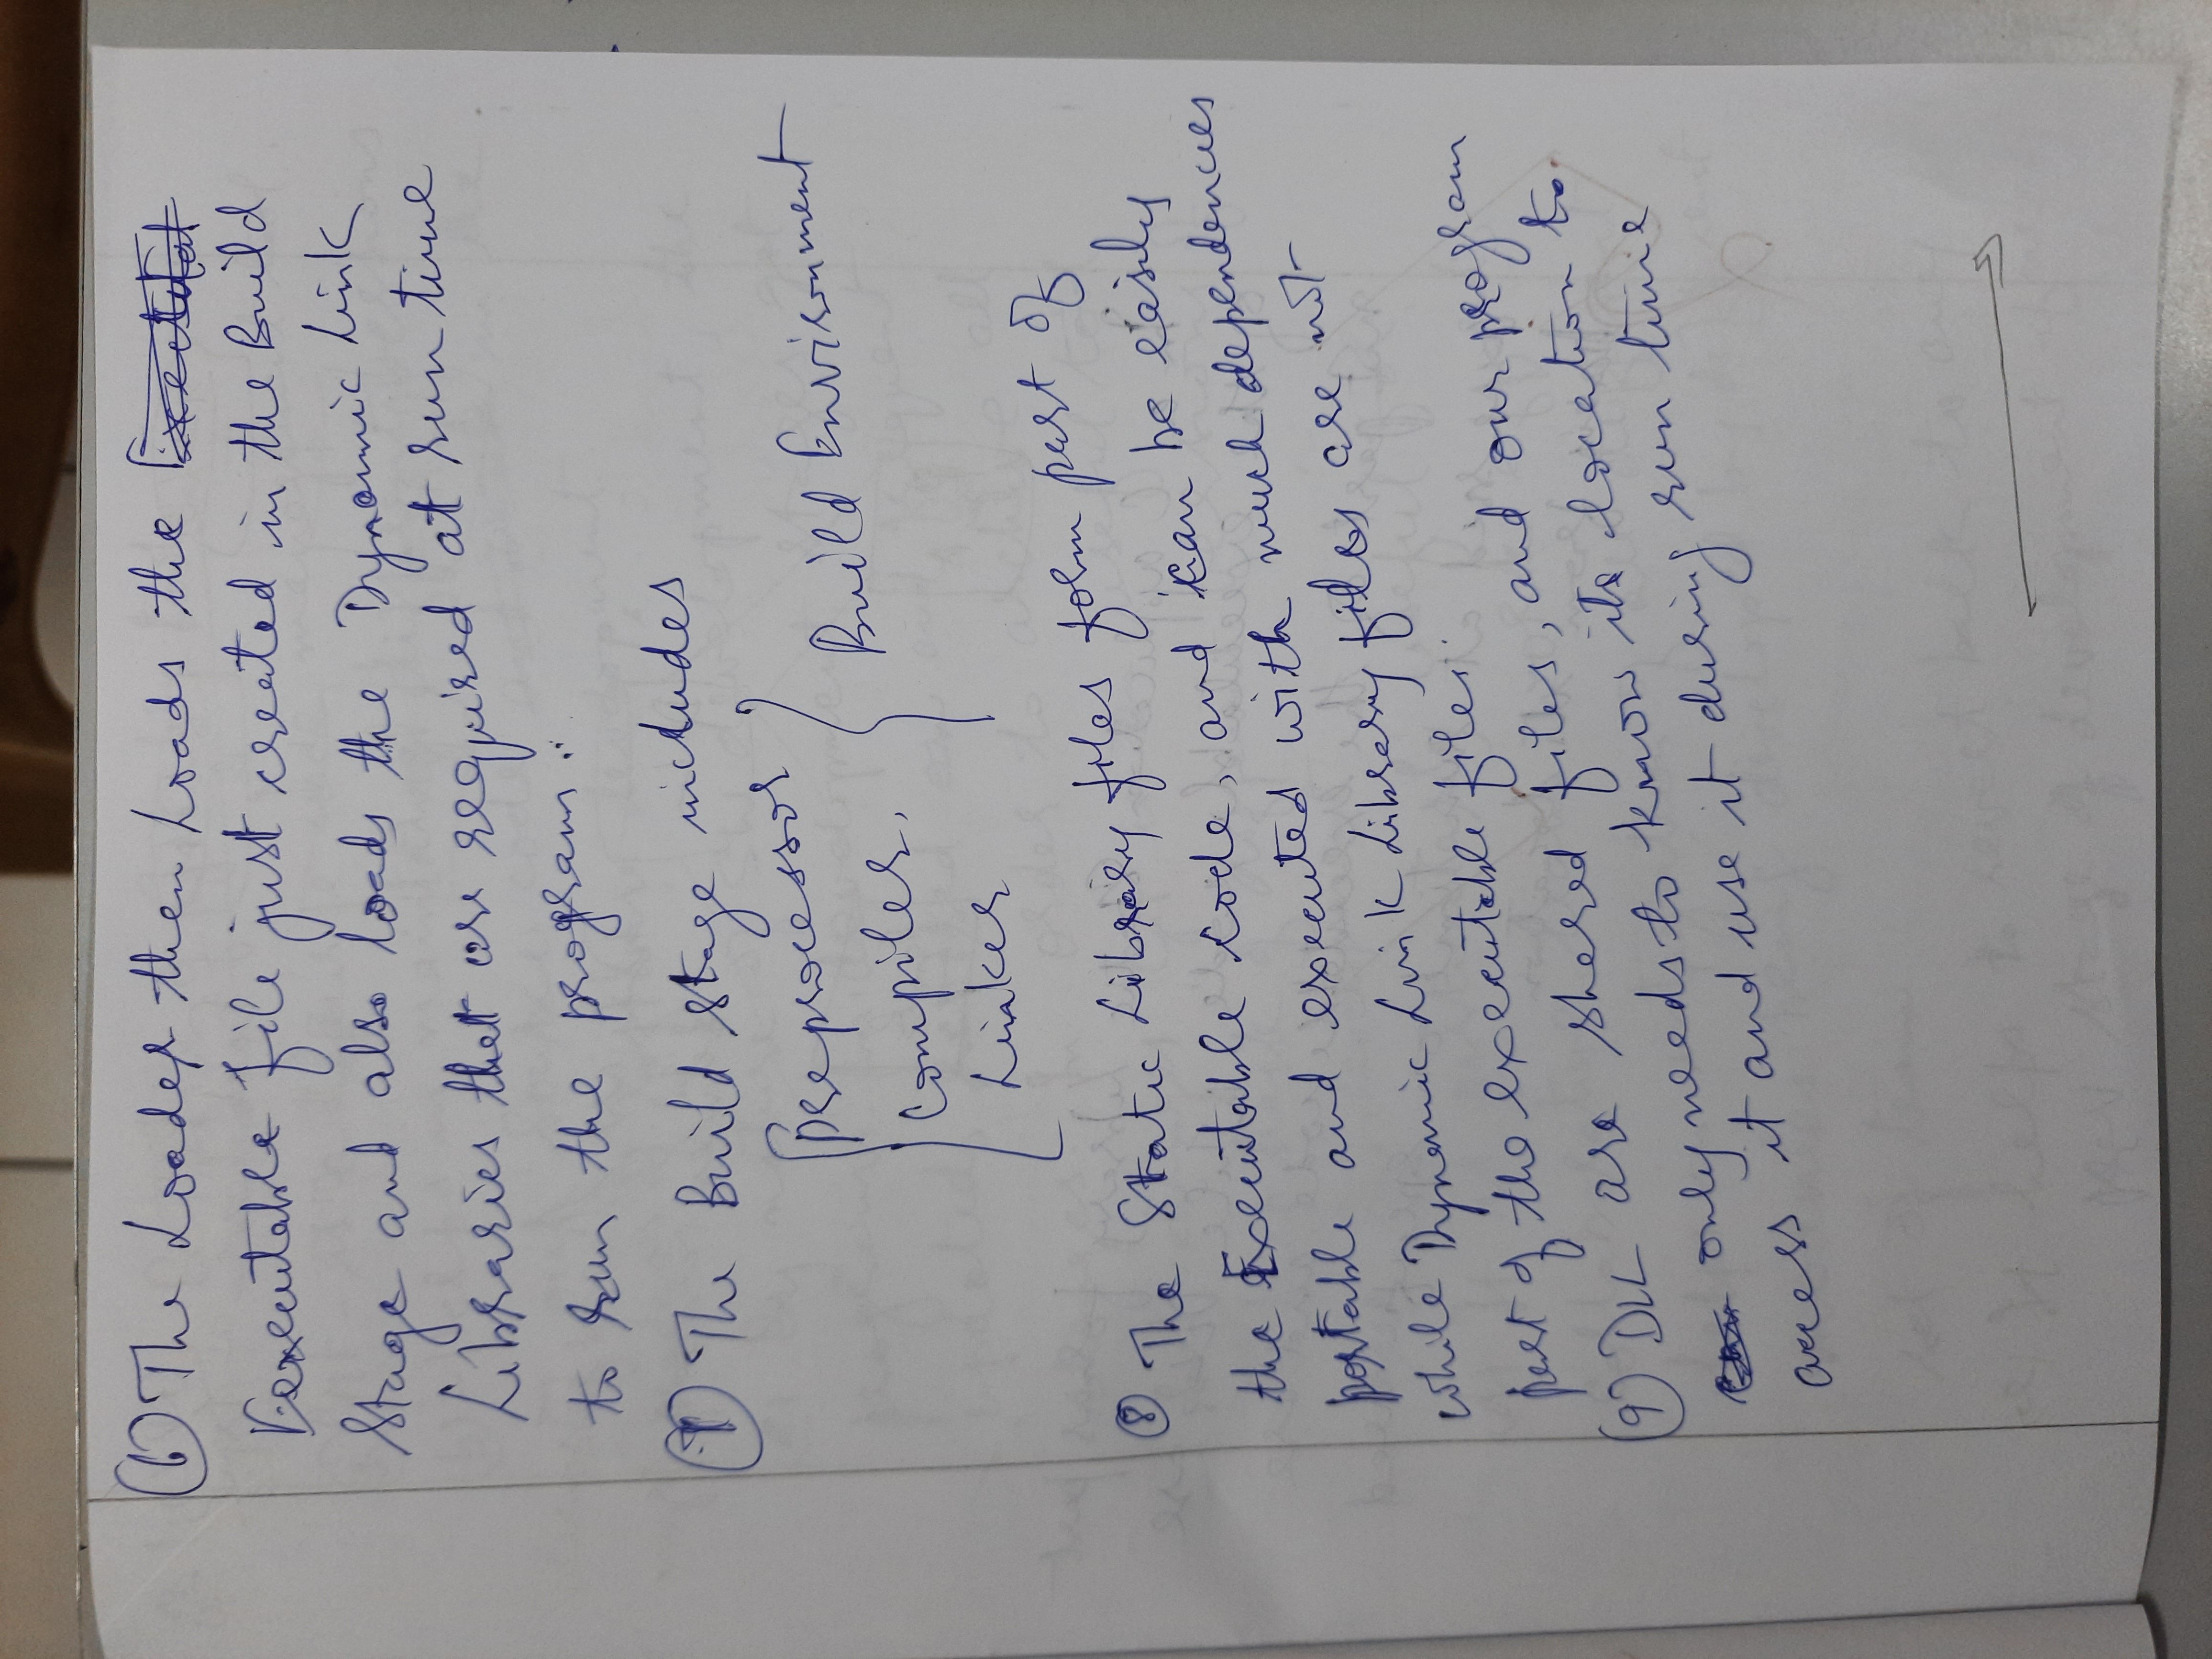 (6) The Loader then Loads the
Executable file just created in the Build
Stage and also loads the Dynamic Link
Libraries that are required at run time
to run the program.
(7) The Build Stage includes
Preprocessor
Compiler,
Linker
Build Environment
(8) The Static Library files form part of
the Executable code, and can be easily
portable and executed with much dependencies
while Dynamic Link Library files are not
part of the executable files.
(9) DLL are shared files, and our program
only needs to know its location to
access it and use it during run time